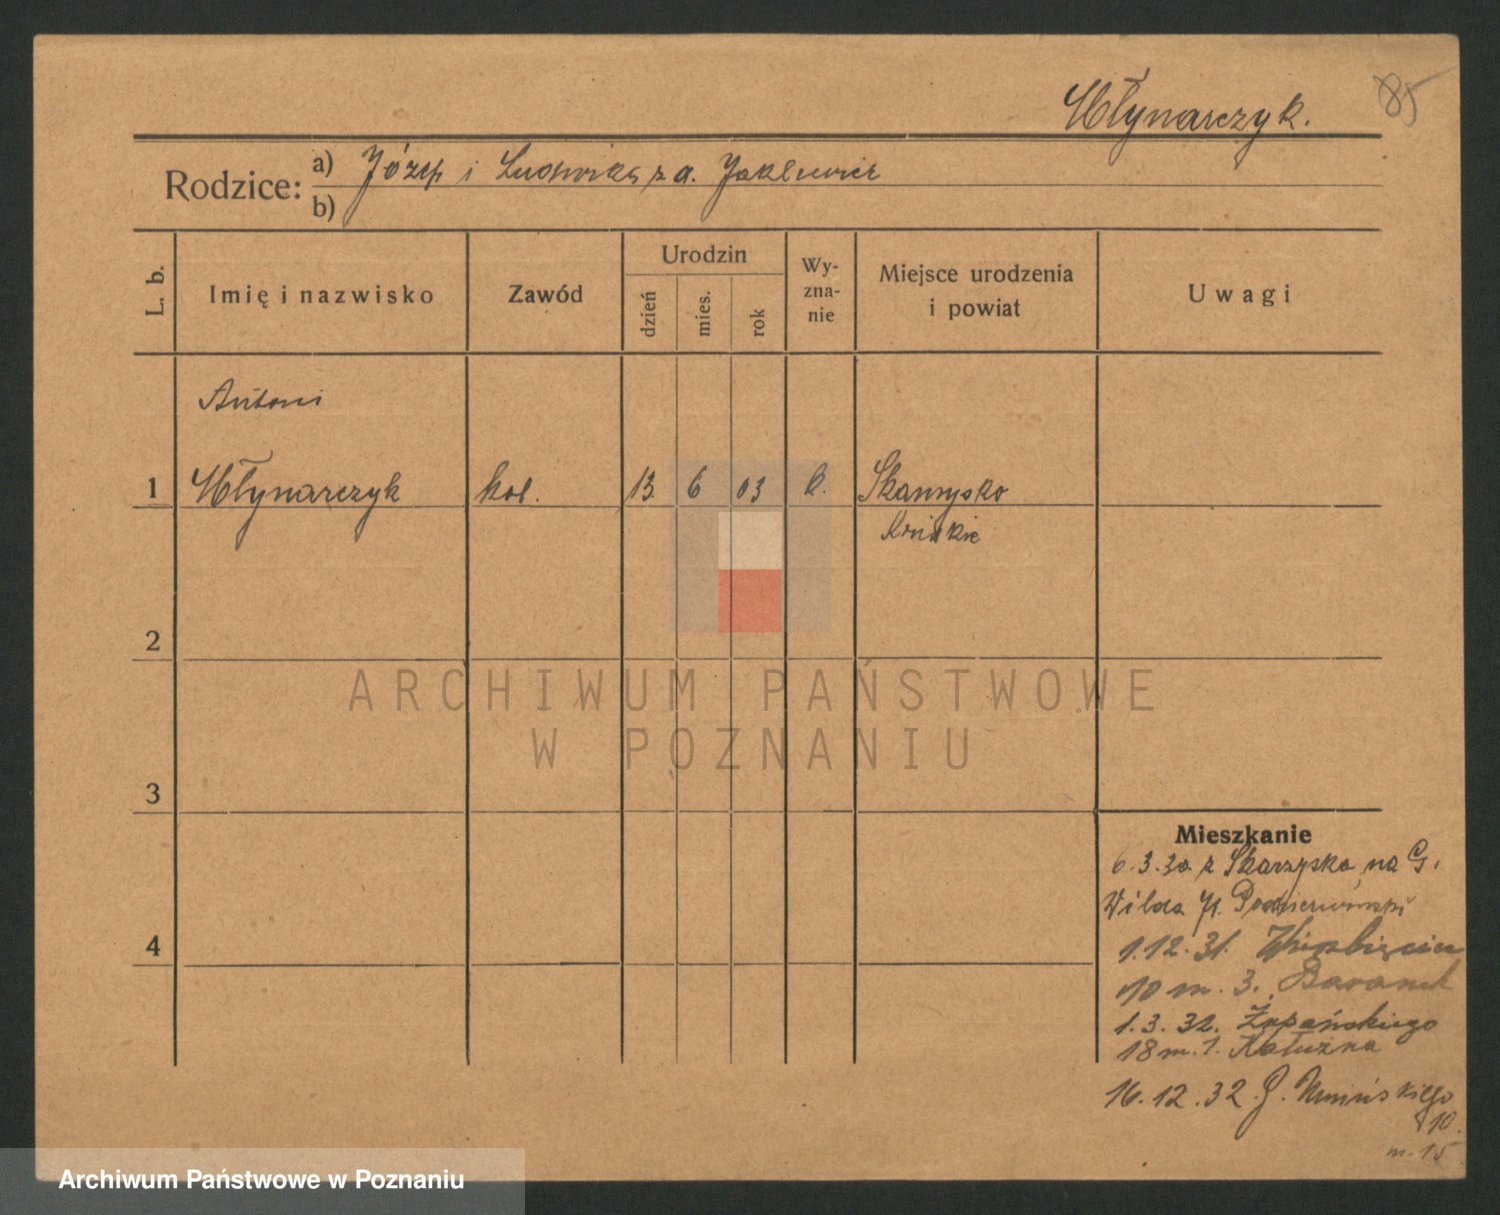 Młynarczyk.
85
Rodzice: a) Józef i Ludwika z d. Jaklewicz
b)
L. b.
Imię i nazwisko
Zawód
Urodzin
dzień
mies.
rok
Wy-
zna-
nie
Miejsce urodzenia
i powiat
Uwagi
Antoni
1 Młynarczyk kol. 13. 6 03 k. Skarzysko
Końskie
2
3
4
Mieszkanie
6.3.30. z Skarzyska na G.
Wilda 71.
1.12.31.
10 m. 3. Baranek
1.3.32. Żupańskiego
18 m. 1. Kałużna
16.12.32. G. Umińskiego
10.
m. 15
ARCHIWUM PAŃSTWOWE
W POZNANIU
Archiwum Państwowe w Poznaniu